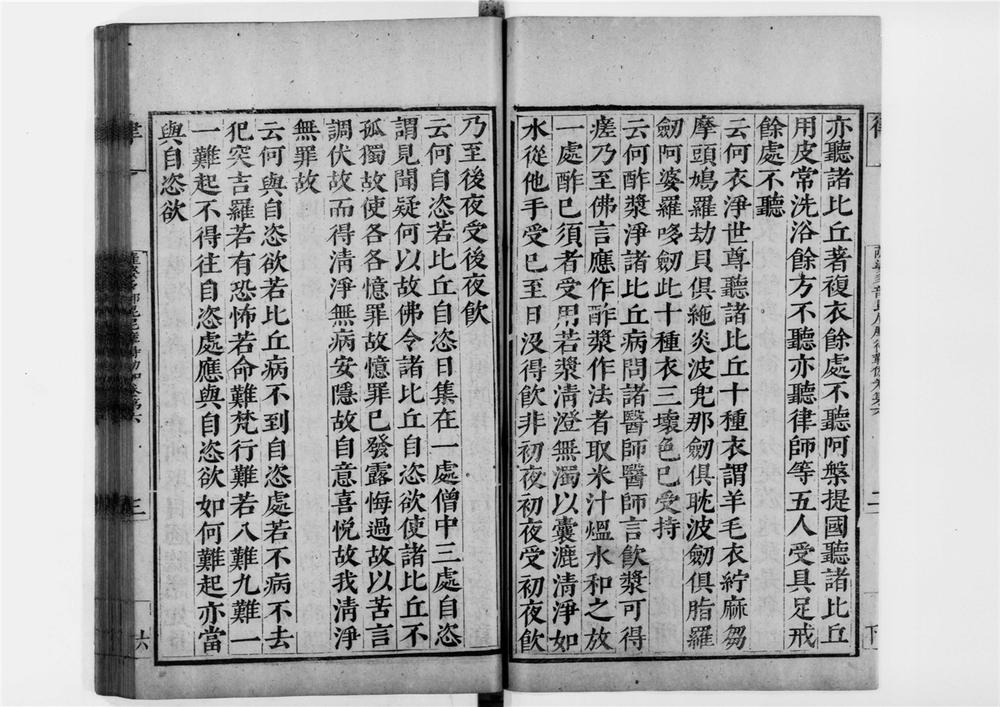 亦聽諸比丘著複衣餘處不聽阿槃提國聽諸比丘
用皮常洗浴餘方不聽亦聽律師等五人受具足戒
餘處不聽
云何衣淨世尊聽諸比丘十種衣謂羊毛衣紵麻芻
摩頭鳩羅劫貝俱絁炎波兜那劒俱耽波劒俱脂羅
劒阿婆羅哆劒此十種衣三壞色已受持
云何酢漿淨諸比丘病問諸醫師醫師言飲漿可得
瘥乃至佛言應作酢漿作法者取米汁熅水和之放
一處酢已須者受用若漿淸澄無濁以囊漉淸淨如
水從他手受已至日沒得飲非初夜初夜受初夜飲
乃至後夜受後夜飲
云何自恣若比丘自恣日集在一處僧中三處自恣
謂見聞疑何以故佛令諸比丘自恣欲使諸比丘不
孤獨故使各各憶罪故憶罪已發露悔過故以苦言
調伏故而得淸淨無病安隱故自意喜悅故我淸淨
無罪故
云何與自恣欲若比丘病不到自恣處若不病不去
犯突吉羅若有恐怖若命難梵行難若八難九難一
一難起不得往自恣處應與自恣欲如何難起亦當
與自恣欲
二
三
六